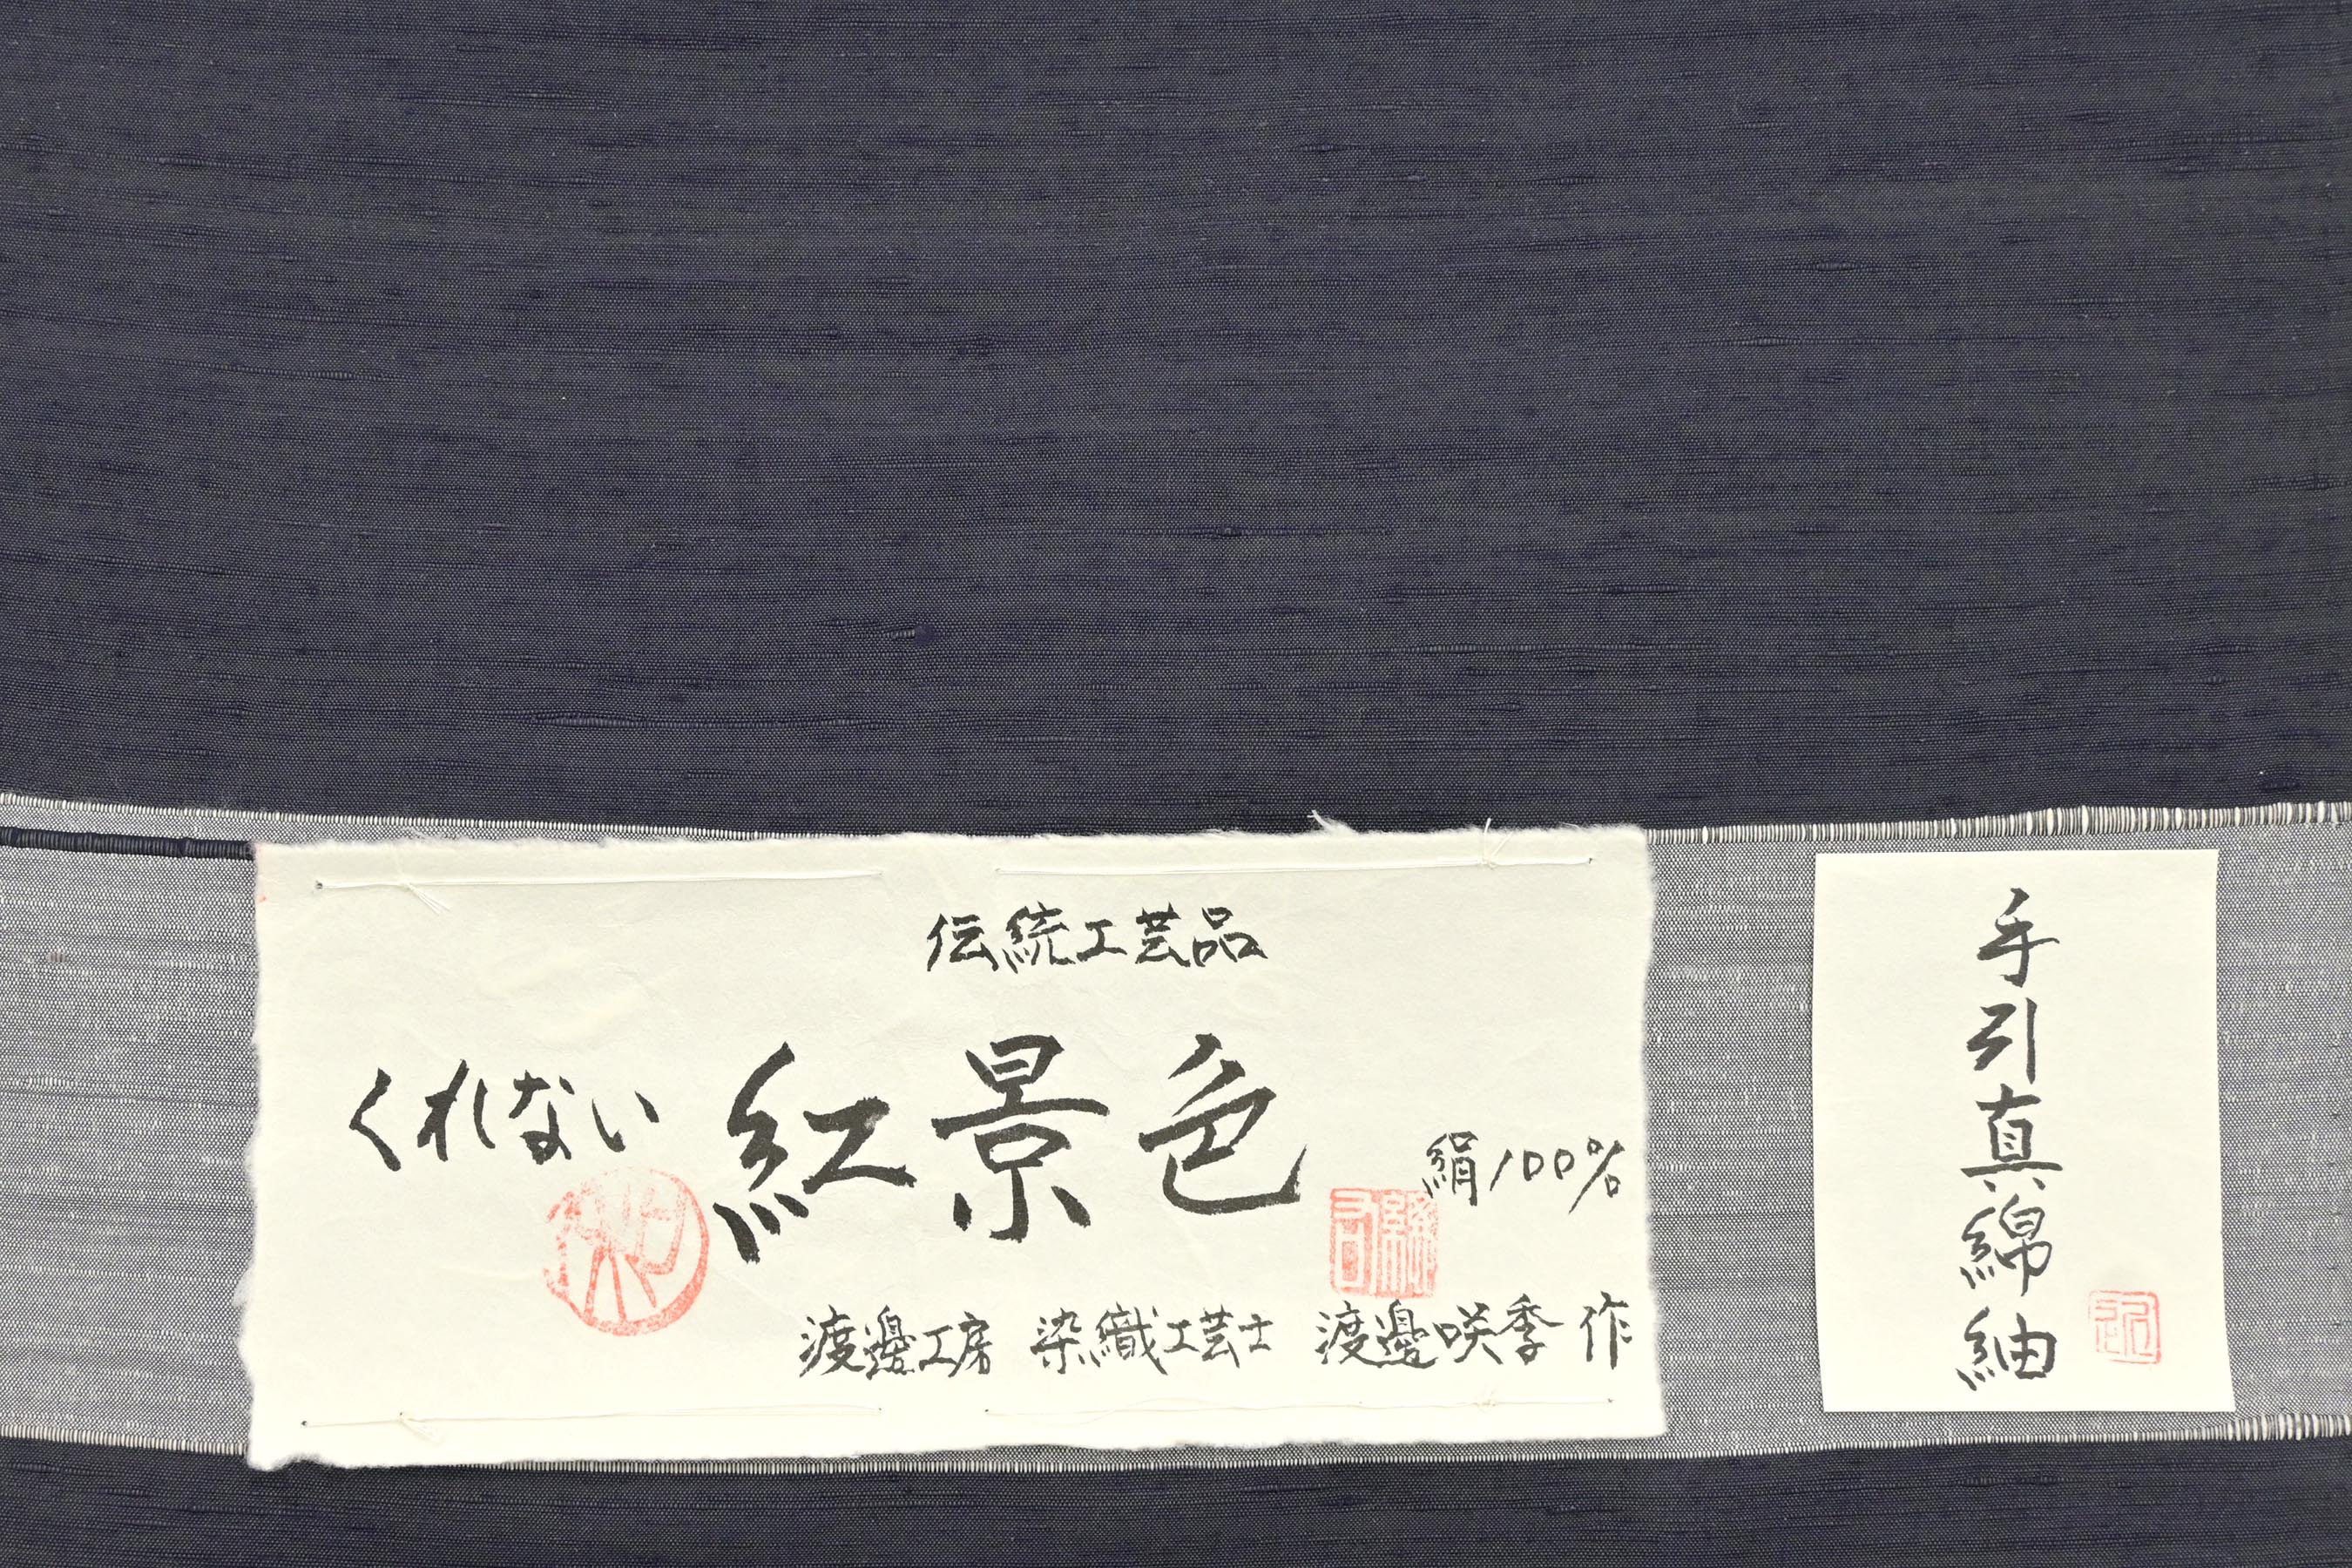 伝統工芸品
くれない 紅景色
絹100%
渡邊工房 染織工芸士 渡邊咲季 作
手引真綿紬